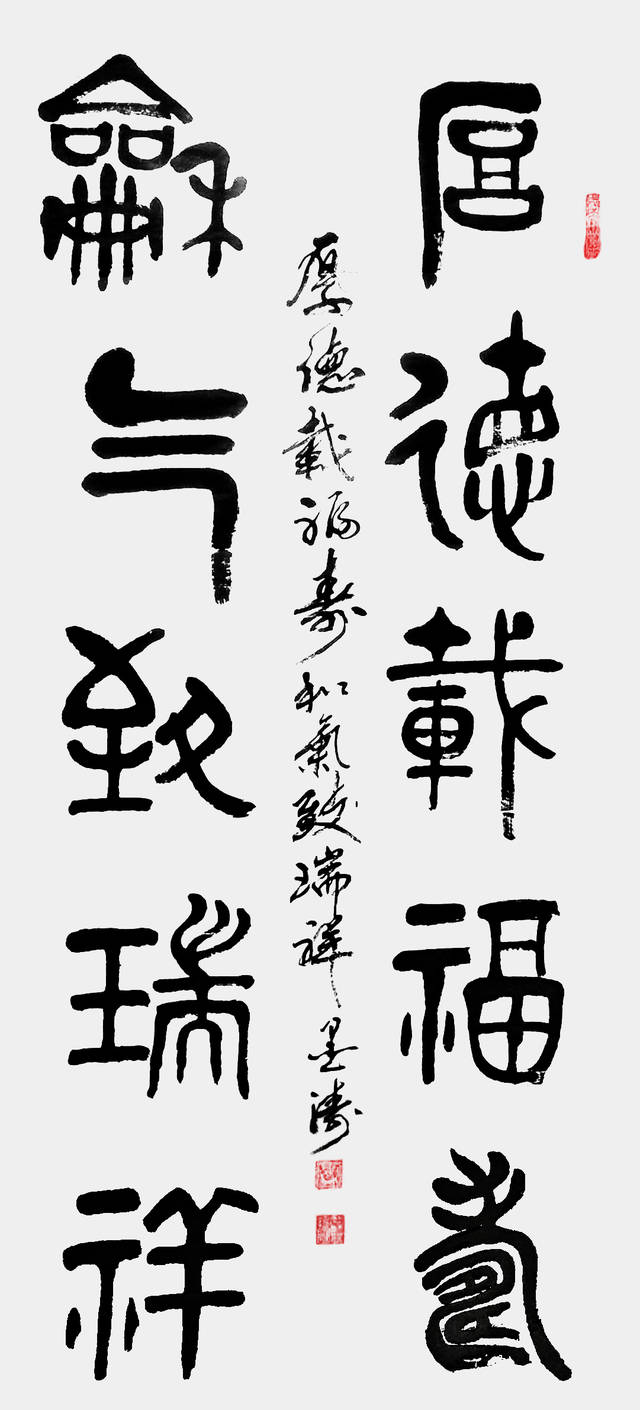 厚德載福壽
龢气致瑞祥
厚德載福壽和氣致瑞祥 墨濤